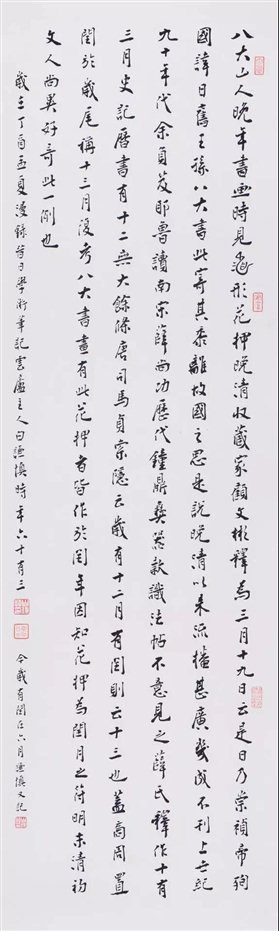 八大山人晚年書畫時見 形花押晚清收藏家顧文彬釋為三月十九日云是日乃崇禎帝殉
國諱日舊王孫八大書此寄其黍離故國之思是說晚清以來流播甚廣幾成不刊上世記
九十年代余負笈耶魯讀南宋薛尚功歷代鐘鼎彝器款識法帖不意見之薛氏釋作十有
三月史記曆書有十二無大餘條唐司馬貞索隱云歲有十二月有閏則云十三也蓋商周置
閏於歲尾稱十三月後考八大書畫有此花押者皆作於閏年因知花押為閏月之符明末清初
文人尚異好奇此一例也
歲在丁酉孟夏漫錄昔日學術筆記雲廬主人白謙慎時年六十有三
今歲有閏在六月謙慎又記